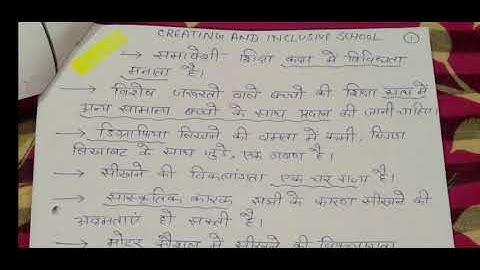 CREATING AND INCLUSIVE SCHOOL ①
→ समावेशी शिक्षा कक्षा में विविधता
मनाता है।
→ विशेष जरूरतों वाले बच्चों की शिक्षा
अन्य सामान्य बच्चों के साथ प्रदान की जानी चाहिए।
→ लिखने की क्षमता में कमी,
लिखावट के साथ जुड़े, एक लक्षण है।
→ सीखने की विकलांगता एक चर राज्य है।
→ सांस्कृतिक कारक सभी के कारण सीखने की
अक्षमताएं हो सकती है।
→ मोटर कौशल में सीखने की विकलांगता